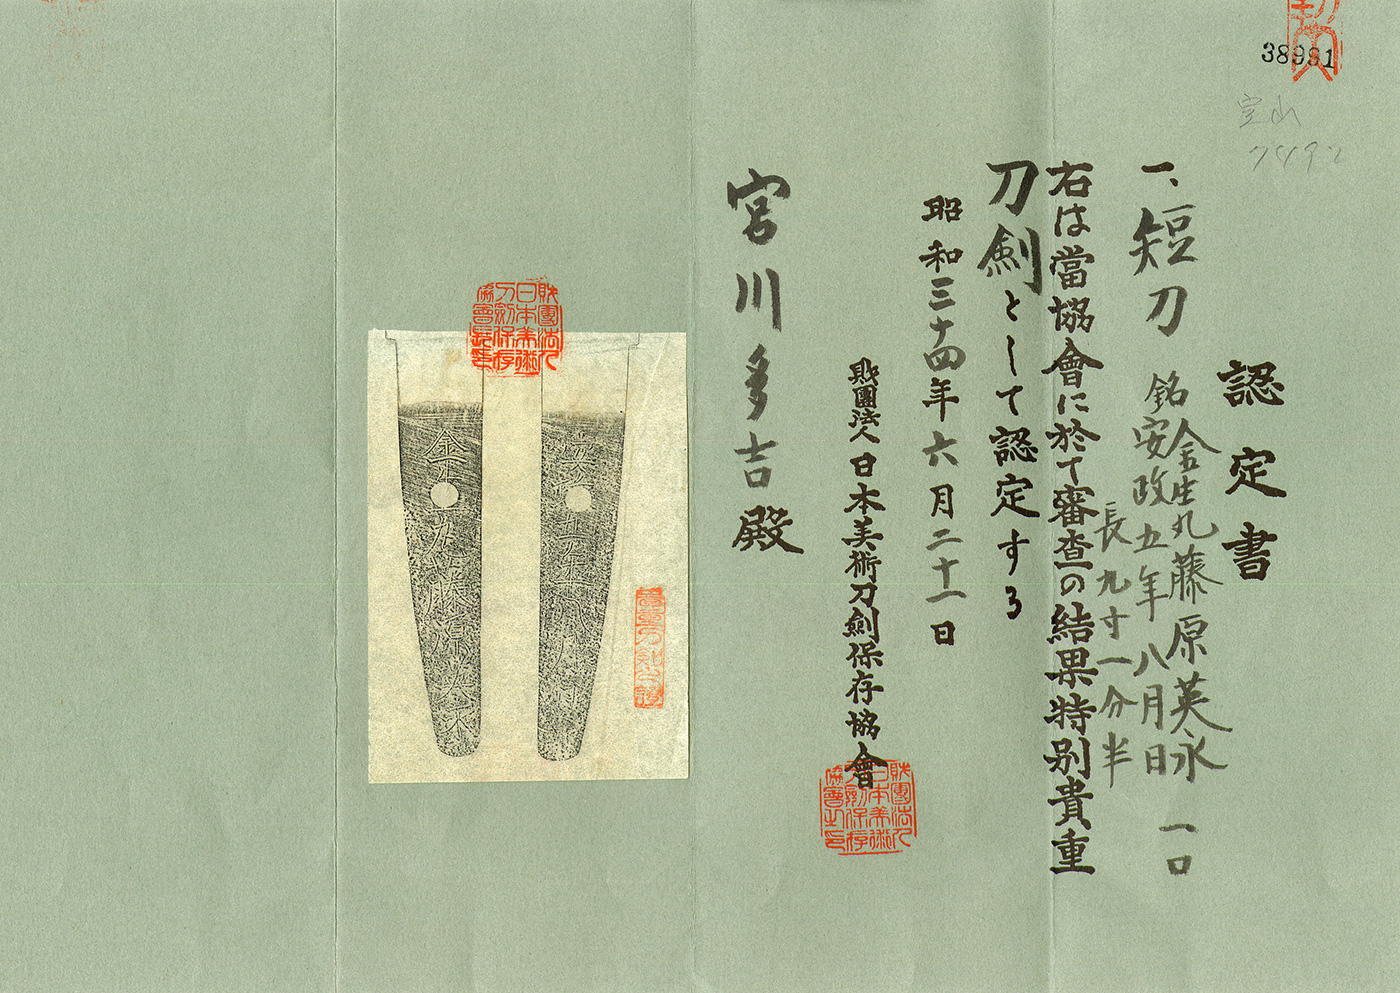 38981
認定書
一、短刀 銘 金生丸藤原英永 一口
安政五年八月日
長九寸一分半
右は當協會に於て審査の結果特別貴重
刀劍として認定する
昭和三十四年六月二十一日
財團法人日本美術刀劍保存協會
財團法人
日本美術
刀劍保存
協會之印
宮川多吉殿
財團法人
日本美術
刀劍保存
協會長印
金生丸藤原英永